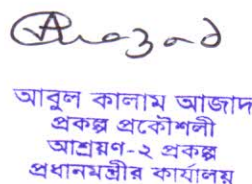 Azad
আবুল কালাম আজাদ
প্রকল্প প্রকৌশলী
আশ্রয়ণ-২ প্রকল্প
প্রধানমন্ত্রীর কার্যালয়